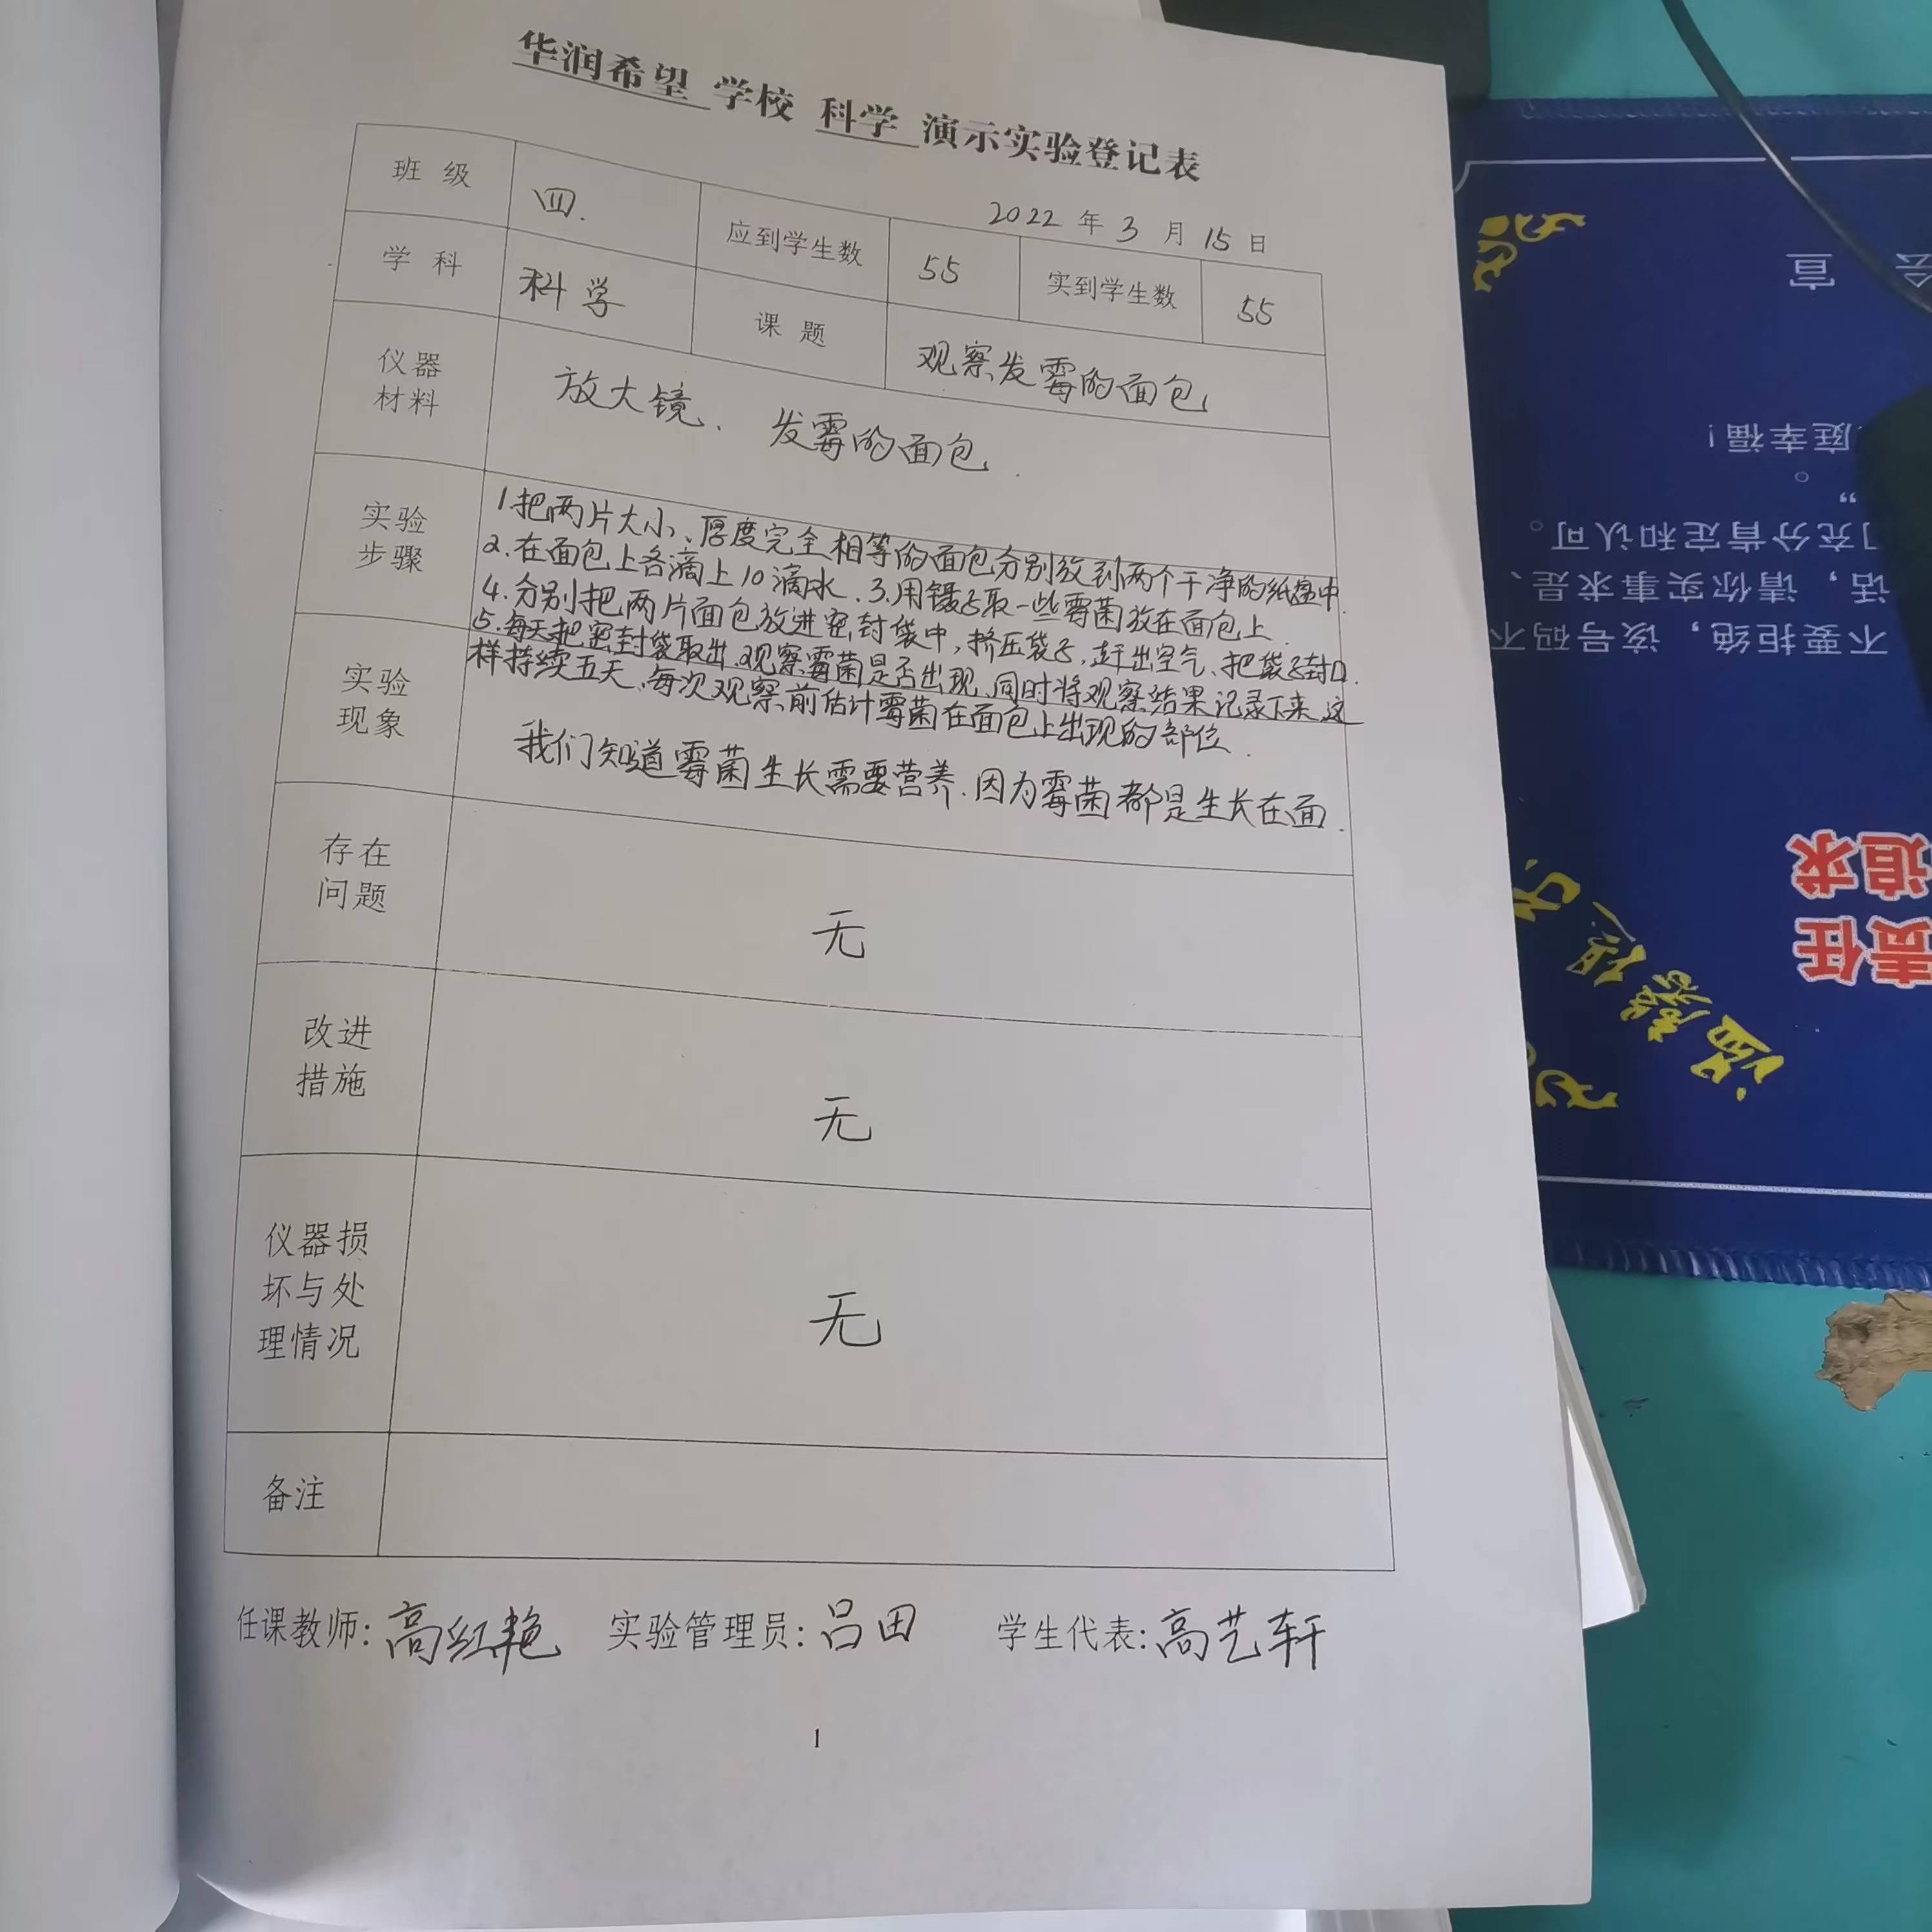 华润希望 学校 科学 演示实验登记表
2022 年 3 月 15 日
班 级 四. 应到学生数 55 实到学生数 55
学 科 科学 课 题 观察发霉的面包
仪器
材料
放大镜、发霉的面包.
实验
步骤
1.把两片大小、厚度完全相等的面包分别放到两个干净的纸盘中.
2.在面包上各滴上10滴水.3.用镊子取一些霉菌放在面包上.
4.分别把两片面包放进密封袋中,挤压袋子,赶出空气、把袋子封口.
5.每天把密封袋取出、观察霉菌是否出现、同时将观察结果记录下来.这
样持续五天、每次观察前估计霉菌在面包上出现的部位.
实验
现象
我们知道霉菌生长需要营养.因为霉菌都是生长在面.
存在
问题
无
改进
措施
无
仪器损
坏与处
理情况
无
备注
任课教师:高红艳 实验管理员:吕田 学生代表:高艺轩
1
会 宣
庭幸福!
。
”
充分肯定和认可。
话,请你实事求是、
不要拒绝,该号码不
追求
责任
温馨提示